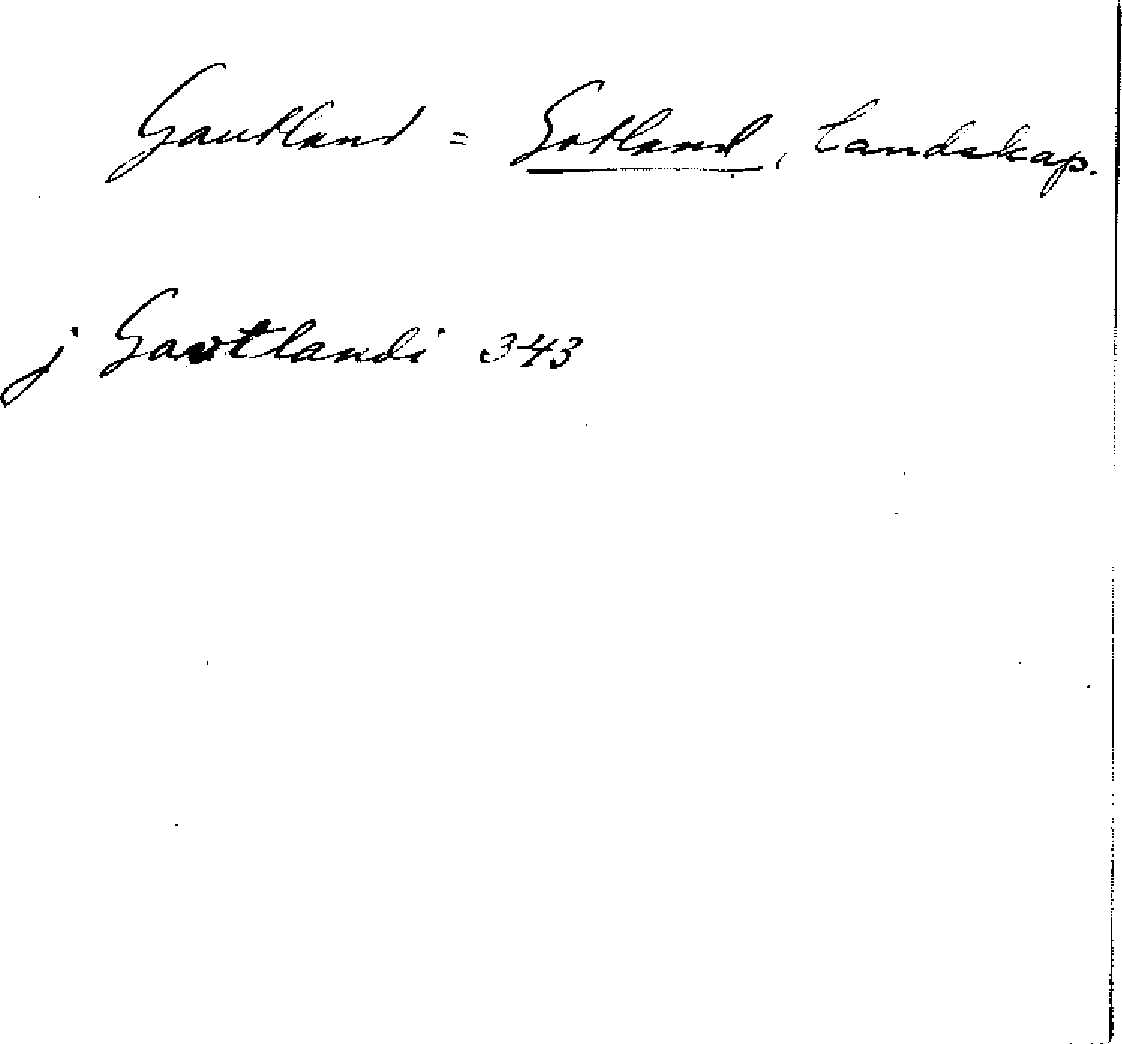 Gautland = Gotland, landskap.
j Gavtlandi 343